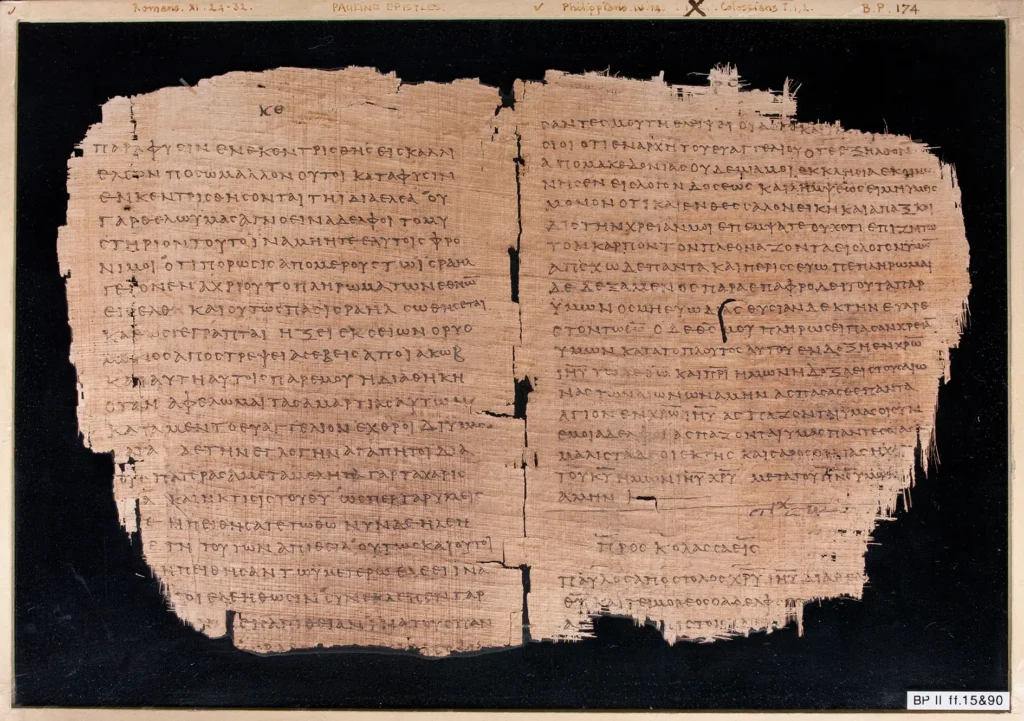 Romans. XI. 24-32. PAULINE EPISTLES. Philippians. IV. 14. X Colossians I. 1, 2. B.P. 174
ΚΘ
ΠΑΡΑΦΥϹΙΝ ΕΝΕΚΕΝΤΡΙϹΘΗϹ ΕΙϹ ΚΑΛΛΙ
ΕΛΕΟΝ ΠΟϹΩ ΜΑΛΛΟΝ ΟΥΤΟΙ ΚΑΤΑΦΥϹΙΝ
ΕΝΚΕΝΤΡΙϹΘΗϹΟΝΤΑΙ ΤΗ ΙΔΙΑ ΕΛΕΑ ΟΥ
ΓΑΡ ΘΕΛΩ ΥΜΑϹ ΑΓΝΟΕΙΝ ΑΔΕΛΦΟΙ ΤΟ ΜΥ
ϹΤΗΡΙΟΝ ΤΟΥΤΟ ΙΝΑ ΜΗ ΗΤΕ ΕΑΥΤΟΙϹ ΦΡΟ
ΝΙΜΟΙ ΟΤΙ ΠΩΡΩϹΙϹ ΑΠΟ ΜΕΡΟΥϹ ΤΩ ΙϹΡΑΗΛ
ΓΕΓΟΝΕΝ ΑΧΡΙ ΟΥ ΤΟ ΠΛΗΡΩΜΑ ΤΩΝ ΕΘΝΩ
ΕΙϹΕΛΘΗ ΚΑΙ ΟΥΤΩϹ ΠΑϹ ΙϹΡΑΗΛ ϹΩΘΗϹΕΤΑΙ
ΚΑΘΩϹ ΓΕΓΡΑΠΤΑΙ ΗΞΕΙ ΕΚ ϹΕΙΩΝ Ο ΡΥΟ
ΜΕΝΟϹ ΑΠΟϹΤΡΕΨΕΙ ΑϹΕΒΕΙϹ ΑΠΟ ΙΑΚΩΒ
ΚΑΙ ΑΥΤΗ ΑΥΤΟΙϹ Η ΠΑΡ ΕΜΟΥ ΔΙΑΘΗΚΗ
ΟΤΑΝ ΑΦΕΛΩΜΑΙ ΤΑϹ ΑΜΑΡΤΙΑϹ ΑΥΤΩΝ
ΚΑΤΑ ΜΕΝ ΤΟ ΕΥΑΓΓΕΛΙΟΝ ΕΧΘΡΟΙ ΔΙ ΥΜΑϹ
ΚΑΤΑ ΔΕ ΤΗΝ ΕΓΛΟΓΗΝ ΑΓΑΠΗΤΟΙ ΔΙΑ
ΤΟΥϹ ΠΑΤΕΡΑϹ ΑΜΕΤΑΜΕΛΗΤΑ ΓΑΡ ΤΑ ΧΑΡΙϹ
ΚΑΙ Η ΚΤΙϹΙϹ ΤΟΥ ΘΥ ΩϹΠΕΡ ΓΑΡ ΥΜΕΙϹ
ΗΠΕΙΘΗϹΑΤΕ ΤΩ ΘΩ ΝΥΝ ΔΕ ΗΛΕΗ
ΤΗ ΤΟΥΤΩΝ ΑΠΙΘΕΙΑ ΟΥΤΩϹ ΚΑΙ ΟΥΤΟΙ
ΗΠΕΙΘΗϹΑΝ ΤΩ ΥΜΕΤΕΡΩ ΕΛΕΕΙ ΙΝΑ
ΤΟΙ ΕΛΕΗΘΩϹΙΝ ϹΥΝΕΚΛΕΙϹΕΝ ΓΑΡ
ΕΙϹ ΑΠΙΘΙΑΝ ΙΝΑ ΤΟΥϹ ΠΑΝ
ϹΑΝΤΕϹ ΜΟΥ ΤΗ ΘΛΕΙΨΕΙ ΟΙΔΑΤΕ ΚΑΙ
ϹΙΟΙ ΟΤΙ ΕΝ ΑΡΧΗ ΤΟΥ ΕΥΑΓΓΕΛΙΟΥ ΟΤΕ ΕΞΗΛΘΟΝ
ΑΠΟ ΜΑΚΕΔΟΝΙΑϹ ΟΥΔΕΜΙΑ ΜΟΙ ΕΚΚΛΗϹΙΑ ΕΚΟΙΝΩ
ΝΗϹΕΝ ΕΙϹ ΛΟΓΟΝ ΔΟϹΕΩϹ ΚΑΙ ΛΗΜΨΕΩϹ ΕΙ ΜΗ ΥΜΕΙϹ
ΜΟΝΟΝ ΟΤΙ ΚΑΙ ΕΝ ΘΕϹϹΑΛΟΝΕΙΚΗ ΚΑΙ ΑΠΑΞ ΚΑΙ
ΔΙϹ ΤΗΝ ΧΡΕΙΑΝ ΜΟΙ ΕΠΕΜΨΑΤΕ ΟΥΧ ΟΤΙ ΕΠΙΖΗΤΩ
ΤΟΝ ΚΑΡΠΟΝ ΤΟΝ ΠΛΕΟΝΑΖΟΝΤΑ ΕΙϹ ΛΟΓΟΝ ΥΜΩΝ
ΑΠΕΧΩ ΔΕ ΠΑΝΤΑ ΚΑΙ ΠΕΡΙϹϹΕΥΩ ΠΕΠΛΗΡΩΜΑΙ
ΔΕ ΔΕΞΑΜΕΝΟϹ ΠΑΡΑ ΕΠΑΦΡΟΔΕΙΤΟΥ ΤΑ ΠΑΡ
ΥΜΩΝ ΟϹΜΗ ΕΥΩΔΙΑϹ ΘΥϹΙΑΝ ΔΕΚΤΗΝ ΕΥΑΡΕ
ϹΤΟΝ ΤΩ ΘΩ Ο ΔΕ ΘΕΟϹ ΜΟΥ ΠΛΗΡΩϹΕΙ ΠΑϹΑΝ ΧΡΕΙΑ
ΥΜΩΝ ΚΑΤΑ ΤΟ ΠΛΟΥΤΟϹ ΑΥΤΟΥ ΕΝ ΔΟΞΗ ΕΝ ΧΡΩ
ΙΗΥ ΤΩ ΔΕ ΘΩ ΚΑΙ ΠΡΙ ΗΜΩΝ Η ΔΟΞΑ ΕΙϹ ΤΟΥϹ ΑΙΩ
ΝΑϹ ΤΩΝ ΑΙΩΝΩΝ ΑΜΗΝ ΑϹΠΑϹΑϹΘΕ ΠΑΝΤΑ
ΑΓΙΟΝ ΕΝ ΧΡΩ ΙΗΥ ΑϹΠΑΖΟΝΤΑΙ ΥΜΑϹ ΟΙ ϹΥΝ
ΕΜΟΙ ΑΔΕΛΦΟΙ ΑϹΠΑΖΟΝΤΑΙ ΥΜΑϹ ΠΑΝΤΕϹ
ΜΑΛΙϹΤΑ ΔΕ ΟΙ ΕΚ ΤΗϹ ΚΑΙϹΑΡΟϹ ΟΙΚΙΑϹ Η Χ
ΤΟΥ ΚΥ ΗΜΩΝ ΙΗΥ ΧΡΥ ΜΕΤΑ ΤΟΥ ΠΝϹ ΥΜΩΝ
ΑΜΗΝ
ΠΡΟϹ ΚΟΛΑϹϹΑΕΙϹ
ΠΑΥΛΟϹ ΑΠΟϹΤΟΛΟϹ ΧΡΥ ΙΗΥ ΔΙΑ ΘΕΛ
ΘΥ ΚΑΙ ΤΕΙΜΟΘΕΟϹ Ο ΑΔΕΛΦ
BP II ff.15&90